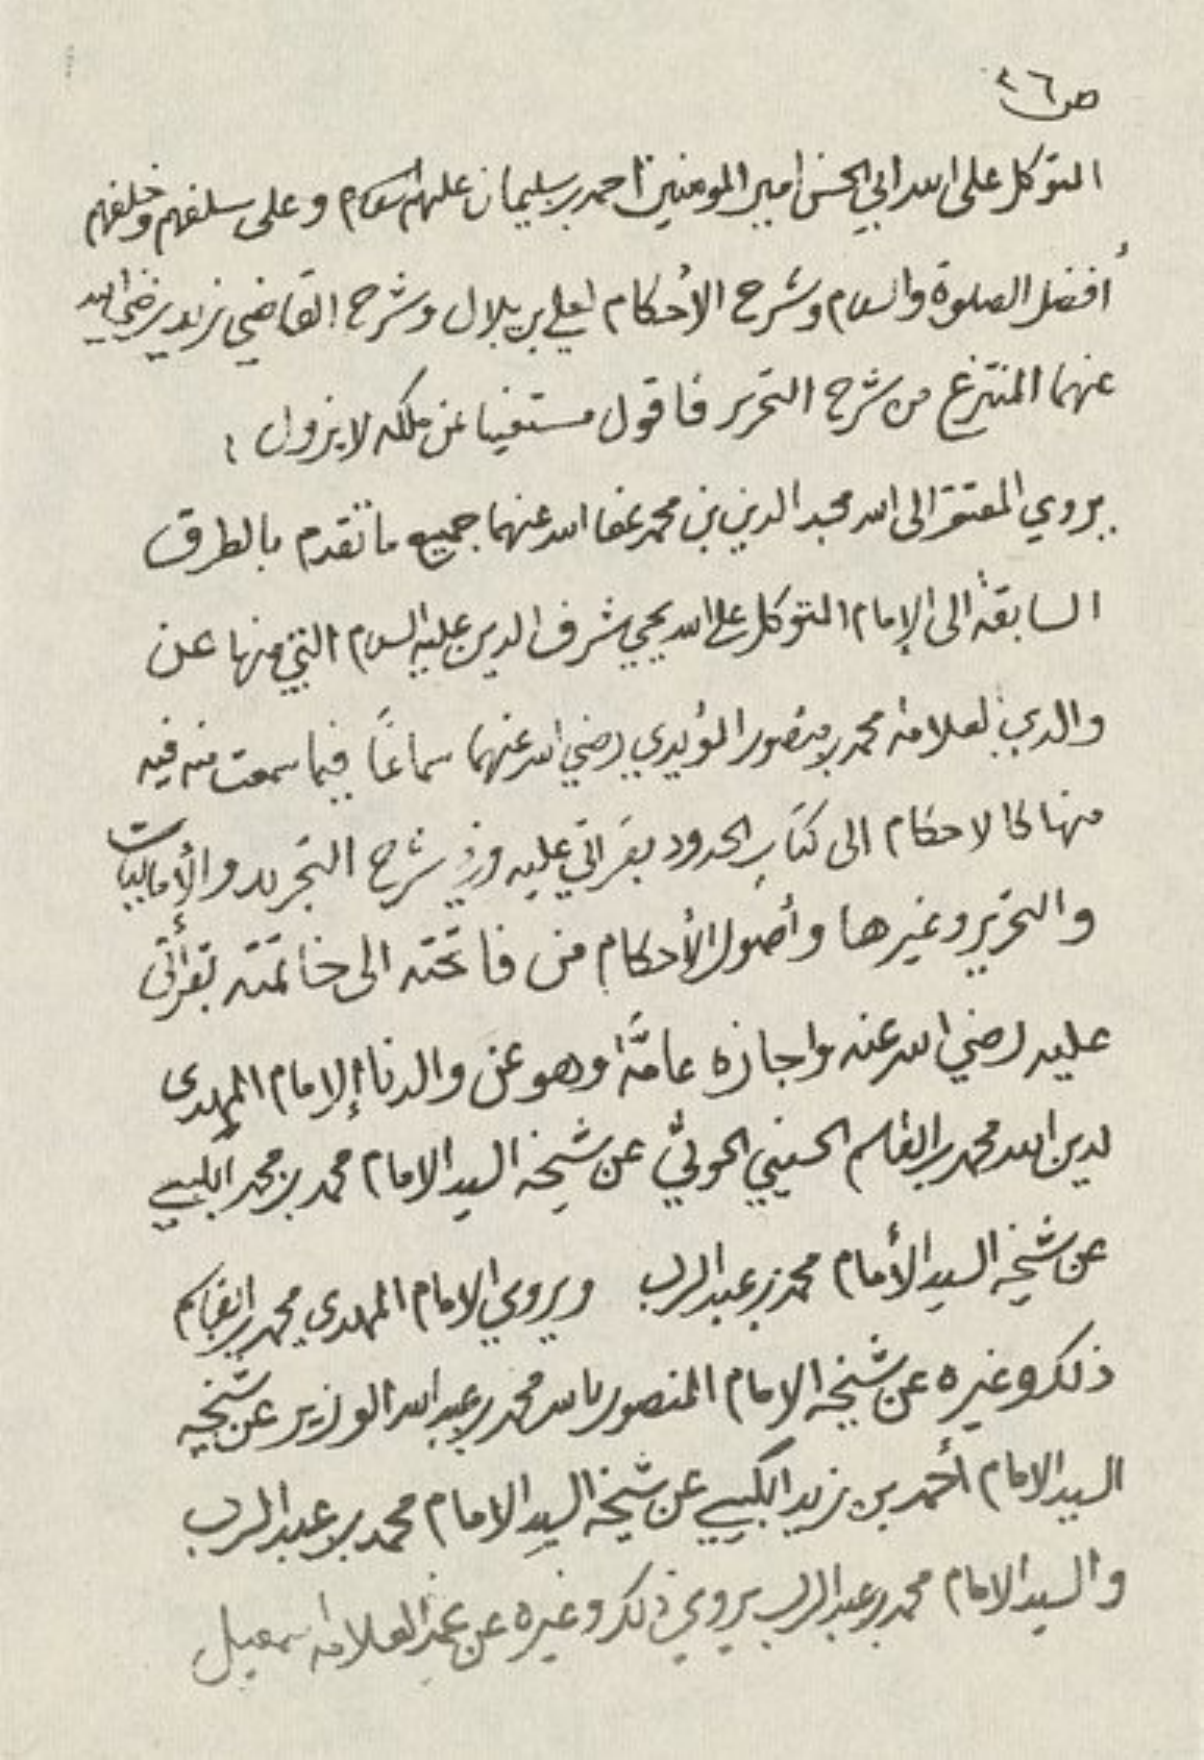 ص ٤٦
المتوكل على الله ابي الحسن أمير المومنين احمد بن سليمان عليهم السلام وعلى سلفهم وخلفهم
أفضل الصلوة والسلام وشرح الأحكام لعلي بن بلال وشرح القاضي زيد رضي الله
عنهما المنتزع من شرح التحرير فاقول مستعينا بمن ملكه لا يزول :
يروي المفتقر الى الله مجد الدين بن محمد عفا الله عنهما جميع ما تقدم بالطرق
السابقة الى الإمام المتوكل على الله يحيى شرف الدين عليه السلام التي منها عن
والدي العلامة محمد بن منصور المؤيدي رضي الله عنهما سماعاً فيما سمعت منه فيه
منها كالاحكام الى كتاب الحدود بقرائتي عليه وفي شرح التجريد والأماليات
والتحرير وغيرها وأصول الأحكام من فاتحته الى خاتمته بقرأتي
عليه رضي الله عنه واجازة عامّة وهو عن والدنا الإمام المهدي
لدين الله محمد بن القاسم الحسيني الحوثيّ عن شيخه السيد الامام محمد بن محمد الكبسي
عن شيخه السيد الأمام محمد بن عبد الرب ويروي الامام المهدي محمد بن القاسم
ذلك وغيره عن شيخه الامام المنصور بالله محمد بن عبد الله الوزير عن شيخيه
السيد الامام أحمد بن زيد الكبسي عن شيخه السيد الامام محمد بن عبد الرب
والسيد الامام محمد بن عبد الرب يروي ذلك وغيره عن عمه العلامة اسمعيل